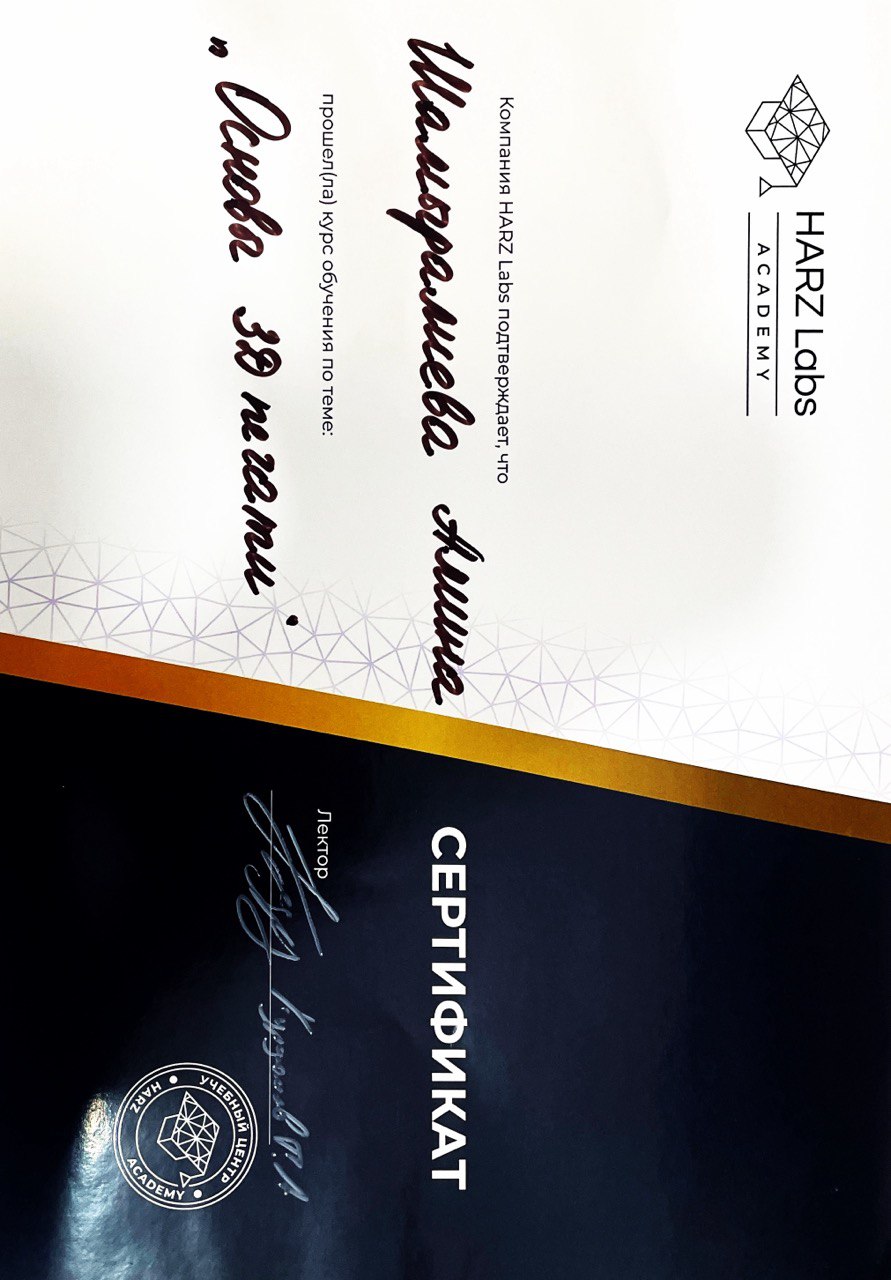 HARZ Labs
ACADEMY
Компания HARZ Labs подтверждает, что
Шамыралиева Амина
прошел(ла) курс обучения по теме:
„Основы 3D печати"
СЕРТИФИКАТ
Лектор
УЧЕБНЫЙ ЦЕНТР
HARZ ACADEMY